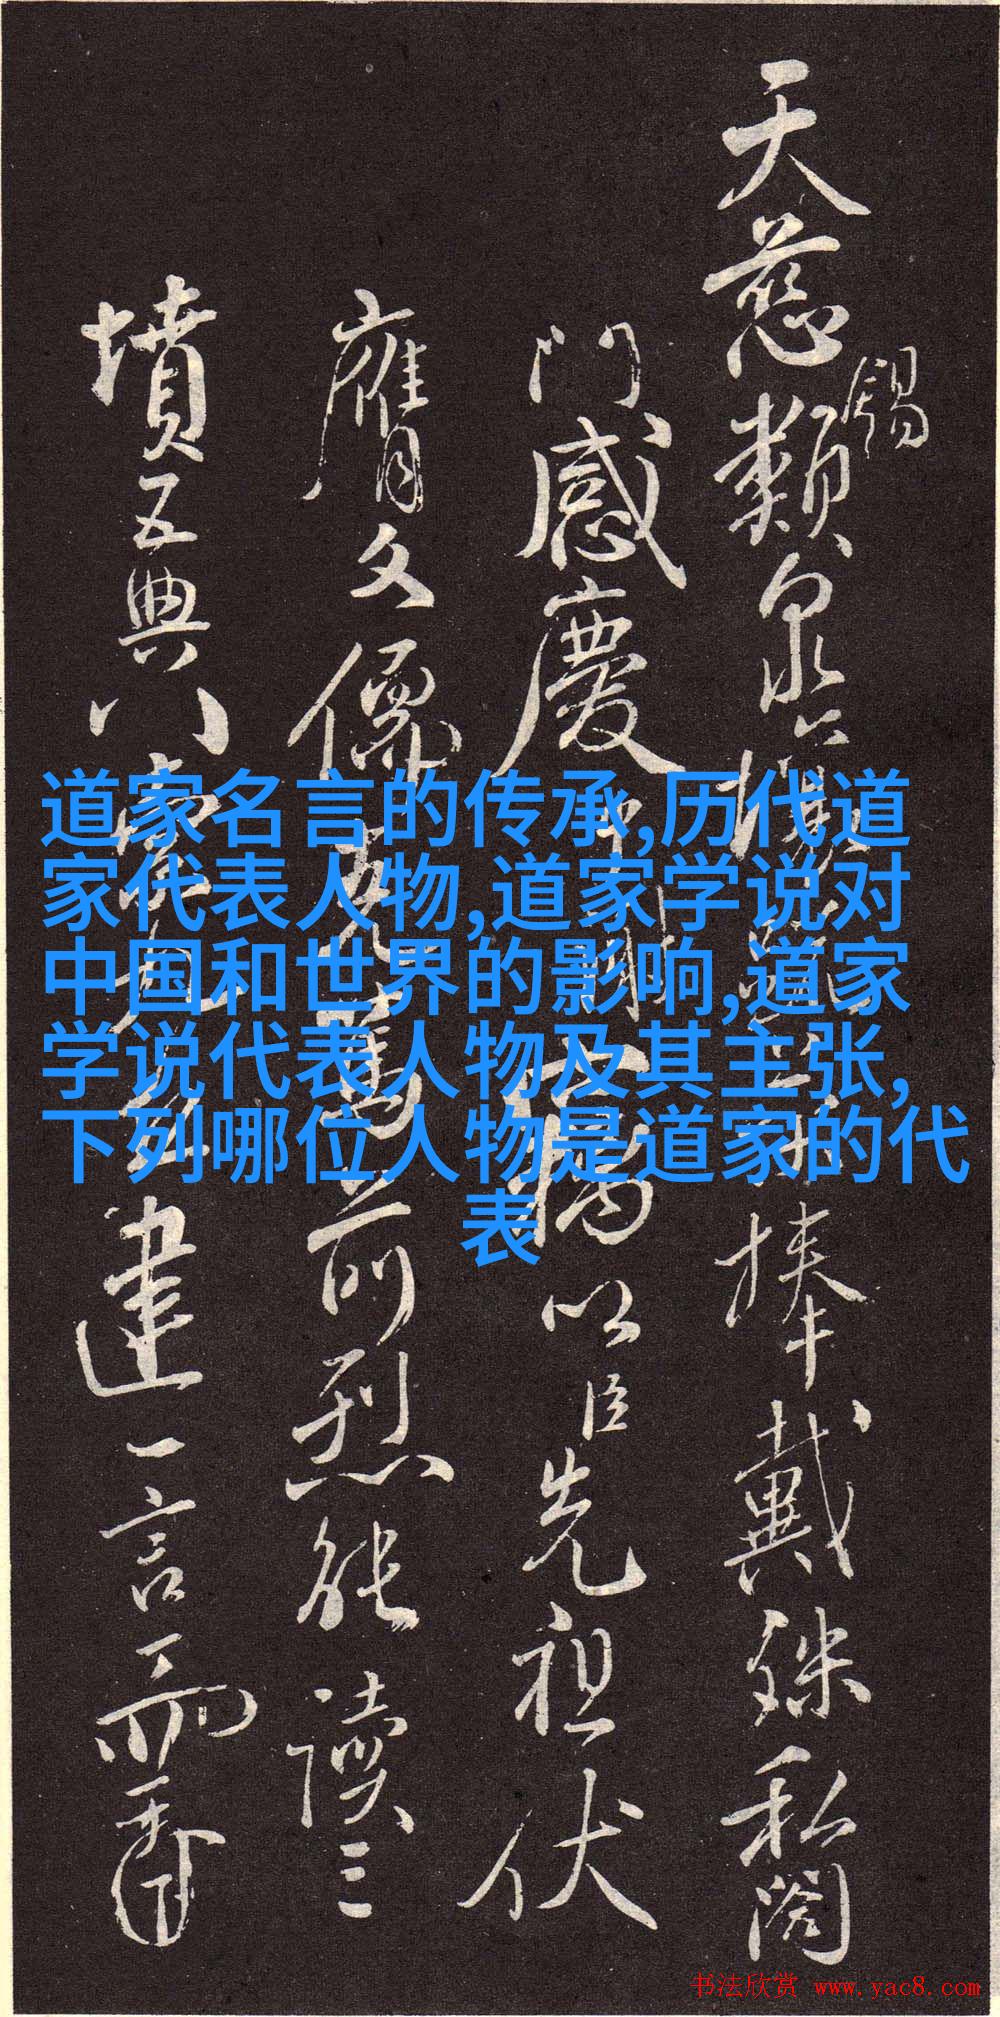 天慈锡類泉
捧戴殊私闔
門感慶
以臣先祖伏
膺文儒
前烈能讀三
墳五典八
建一言
道家名言的传承,历代道
家代表人物,道家学说对
中国和世界的影响,道家
学说代表人物及其主张,
下列哪位人物是道家的代
表
书法欣赏 www.yac8.com